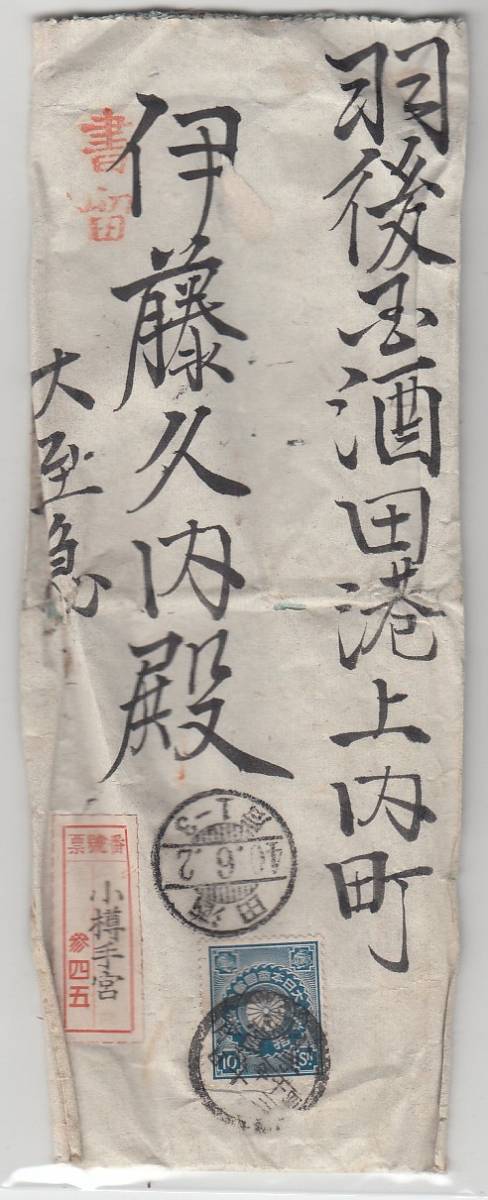 羽後国酒田港上内町
伊藤久内殿
書留
大至急
番號票
小樽手宮
参四五
酒田
40.6.2
前1-3
10 Sn